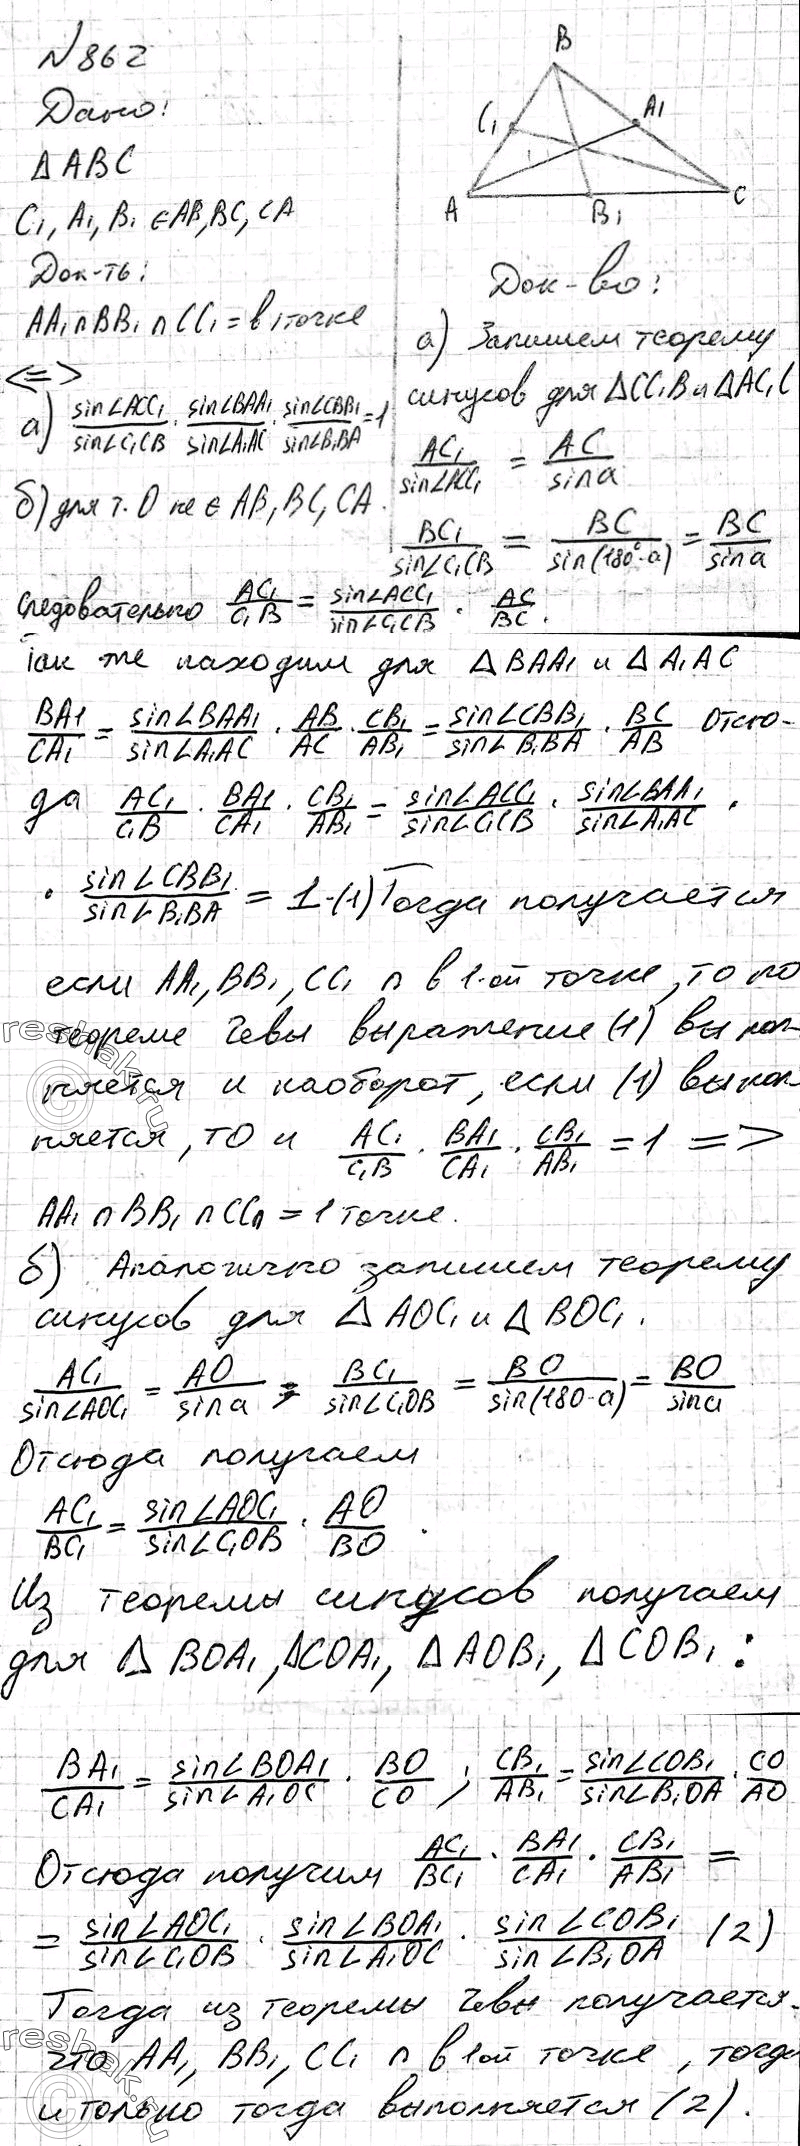 N 862
Дано:
Δ ABC
C₁, A₁, B₁ ∈ AB, BC, CA
Док-ть:
AA₁ ∩ BB₁ ∩ CC₁ = в 1 точке
<=>
а) sin∠ACC₁/sin∠C₁CB · sin∠BAA₁/sin∠A₁AC · sin∠CBB₁/sin∠B₁BA = 1
б) для т. O не ∈ AB, BC, CA.
B
C₁
A₁
A
B₁
C
Док-во:
а) Запишем теорему
синусов для ΔCC₁B и ΔAC₁C
AC₁/sin∠ACC₁ = AC/sin a
BC₁/sin∠C₁CB = BC/sin(180°-a) = BC/sin a
следовательно AC₁/C₁B = sin∠ACC₁/sin∠C₁CB · AC/BC.
Так же находим для Δ BAA₁ и Δ A₁AC
BA1/CA₁ = sin∠BAA₁/sin∠A₁AC · AB/AC · CB₁/AB₁ = sin∠CBB₁/sin∠B₁BA · BC/AB Отсю-
да AC₁/C₁B · BA1/CA₁ · CB₁/AB₁ = sin∠ACC₁/sin∠C₁CB · sin∠BAA₁/sin∠A₁AC ·
· sin∠CBB₁/sin∠B₁BA = 1-(1) Тогда получается
если AA₁, BB₁, CC₁ ∩ в 1-ой точке, то по
теореме Чевы выражение (1) выпол-
няется и наоборот, если (1) выпол-
няется, то и AC₁/C₁B · BA₁/CA₁ · CB₁/AB₁ = 1 =>
AA₁ ∩ BB₁ ∩ CC₁ = 1 точке.
б) Аналогично запишем теорему
синусов для Δ AOC₁ и Δ BOC₁.
AC₁/sin∠AOC₁ = AO/sin a ; BC₁/sin∠C₁OB = BO/sin(180-a) = BO/sin a
Отсюда получаем
AC₁/BC₁ = sin∠AOC₁/sin∠C₁OB · AO/BO .
Из теоремы синусов получаем
для Δ BOA₁, ΔCOA₁, Δ AOB₁, Δ COB₁:
BA₁/CA₁ = sin∠BOA₁/sin∠A₁OC · BO/CO ; CB₁/AB₁ = sin∠COB₁/sin∠B₁OA · CO/AO
Отсюда получим AC₁/BC₁ · BA1/CA₁ · CB₁/AB₁ =
= sin∠AOC₁/sin∠C₁OB · sin∠BOA₁/sin∠A₁OC · sin∠COB₁/sin∠B₁OA (2)
Тогда из теоремы Чевы получается.
что AA₁, BB₁, CC₁ ∩ в 1ой точке, тогда
и только тогда выполняется (2).
reshak.ru
reshak.ru